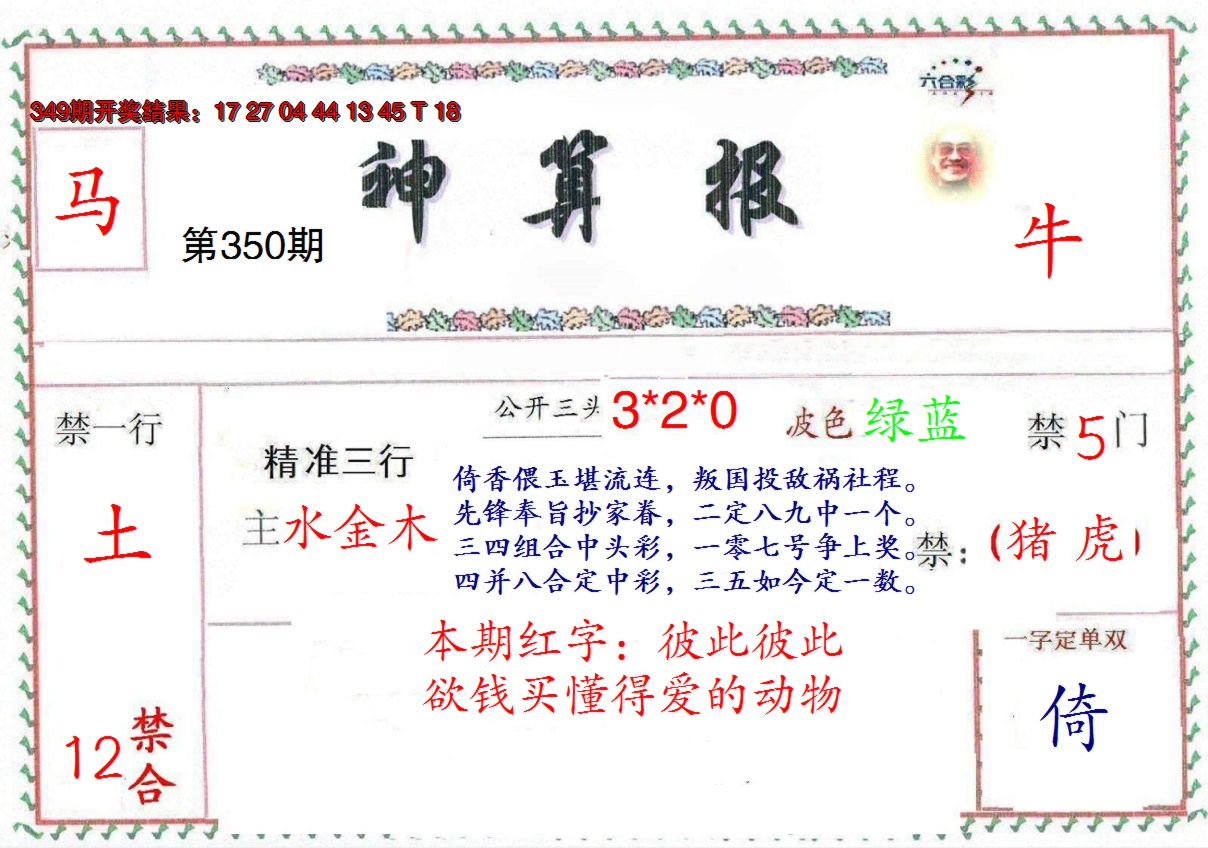 六合彩
349期开奖结果：17 27 04 44 13 45 T 18
马
神算报
第350期
牛
禁一行
土
12
禁合
精准三行
主水金木
公开三头 3*2*0
波色 绿蓝
禁5门
倚香偎玉堪流连，叛国投敌祸社程。
先锋奉旨抄家眷，二定八九中一个。
三四组合中头彩，一零七号争上奖。
四并八合定中彩，三五如今定一数。
禁：(猪 虎)
本期红字：彼此彼此
欲钱买懂得爱的动物
一字定单双
倚